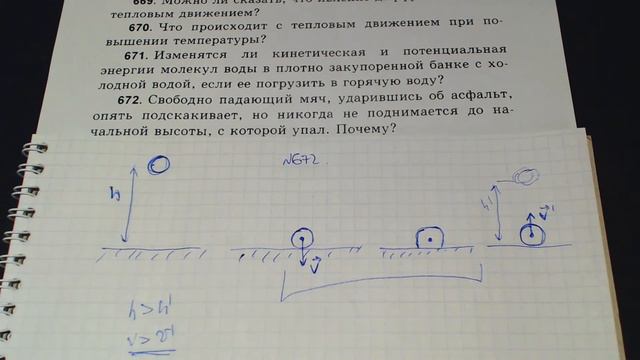 669. Можно ли сказать, что
тепловым движением?
670. Что происходит с тепловым движением при по-
вышении температуры?
671. Изменятся ли кинетическая и потенциальная
энергии молекул воды в плотно закупоренной банке с хо-
лодной водой, если ее погрузить в горячую воду?
672. Свободно падающий мяч, ударившись об асфальт,
опять подскакивает, но никогда не поднимается до на-
чальной высоты, с которой упал. Почему?
№672.
h
v
h'
v'
h > h'
v > v'